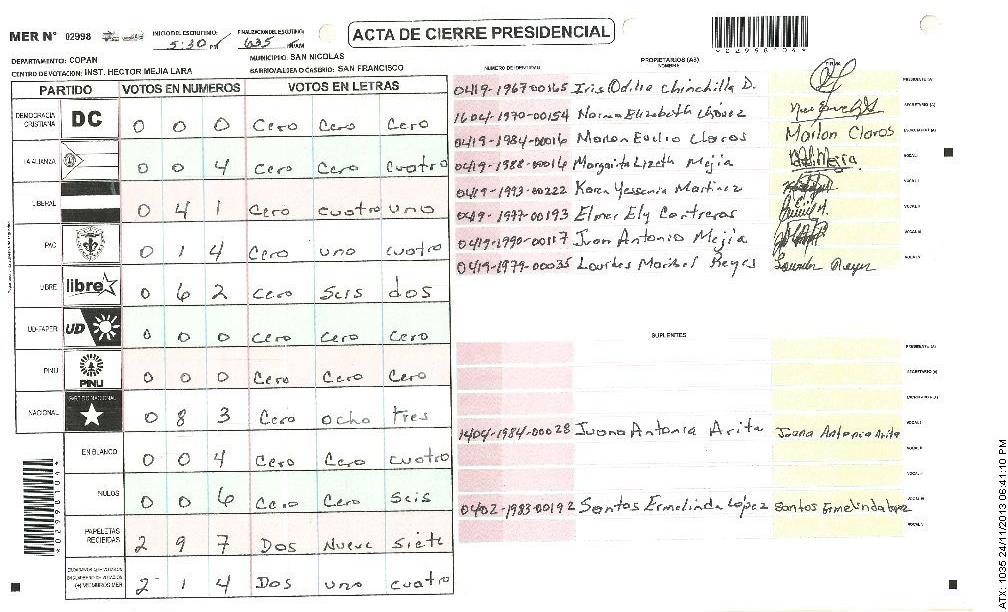 MER N° 02998
INICIO DEL ESCRUTINIO: 5:30 PM
FINALIZACION DEL ESCRUTINIO: 635
ACTA DE CIERRE PRESIDENCIAL
*02998104*
DEPARTAMENTO: COPAN
MUNICIPIO: SAN NICOLAS
CENTRO DE VOTACION: INST. HECTOR MEJIA LARA
BARRIO/ALDEA O CASERIO: SAN FRANCISCO
PARTIDO VOTOS EN NUMEROS VOTOS EN LETRAS
DEMOCRACIA CRISTIANA DC 0 0 0 Cero Cero Cero
LA ALIANZA 0 0 4 Cero Cero cuatro
LIBERAL 0 4 1 Cero cuatro uno
PAC 0 1 4 Cero uno cuatro
LIBRE libre 0 6 2 Cero Seis dos
UD-FAPER UD 0 0 0 Cero Cero Cero
PINU PINU 0 0 0 Cero Cero Cero
NACIONAL PARTIDO NACIONAL 0 8 3 Cero ocho tres
EN BLANCO 0 0 4 Cero Cero cuatro
NULOS 0 0 6 Cero Cero Seis
PAPELETAS RECIBIDAS 2 9 7 Dos Nueve Siete
CIUDADANOS QUE VOTARON EN CUADERNO DE VOTACION (+) MIEMBROS MER 2 1 4 Dos uno cuatro
*02998104*
NUMERO DE IDENTIDAD
PROPIETARIOS (AS)
NOMBRE
FIRMA
0419-1967-00165 Iris Odilia Chinchilla D. PRESIDENTE (A)
1604-1970-00154 Norma Elizabeth Chávez SECRETARIO (A)
0419-1984-00016 Marlon Euclio Claros Marlon Claros ESCRUTADOR (A)
0419-1988-00016 Margarita Lizeth Mejia VOCAL I
0419-1993-00222 Karen Yessenia Martinez VOCAL II
0419-1977-00193 Elmer Ely Contreras VOCAL III
0419-1990-00117 Juan Antonio Mejia VOCAL IV
0419-1979-00035 Lourdes Maribel Reyes Lourdes Reyes VOCAL V
SUPLENTES
PRESIDENTE (A)
SECRETARIO (A)
ESCRUTADOR (A)
1404-1984-00028 Juana Antonia Arita Juana Antonia Arita VOCAL I
VOCAL II
VOCAL III
0402-1983-00192 Santos Ermelinda López Santos Ermelinda Lopez VOCAL IV
VOCAL V
ATX: 1035 24/11/2013 06:41:10 PM